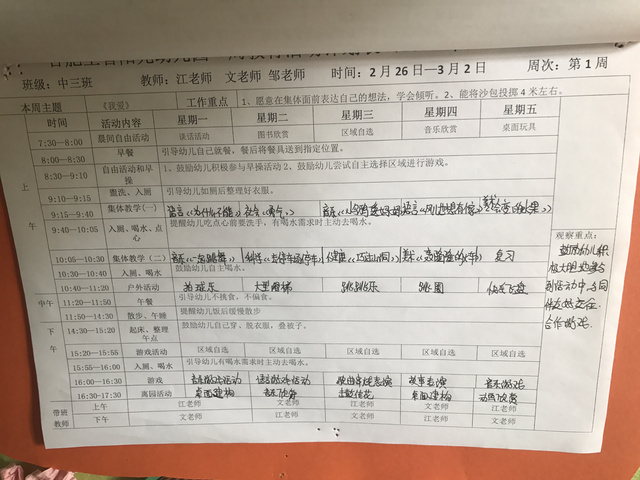 班级：中三班 教师：江老师 文老师 邹老师 时间：2月26日—3月2日 周次：第1周
本周主题 《我爱》 工作重点 1、愿意在集体面前表达自己的想法，学会倾听。2、能将沙包投掷4米左右。
时间 活动内容 星期一 星期二 星期三 星期四 星期五
上午
7:30—8:00 晨间自由活动 谈话活动 图书欣赏 区域自选 音乐欣赏 桌面玩具
8:00—8:30 早餐 引导幼儿自己就餐，餐后将餐具送到指定位置。
8:30—9:10 自由活动和早操 1、鼓励幼儿积极参与早操活动2、鼓励幼儿尝试自主选择区域进行游戏。
9:10—9:15 盥洗、入厕 引导幼儿如厕后整理好衣服。
9:15—9:40 集体教学(一)
9:40—10:05 入厕、喝水、点心 提醒幼儿吃点心前要洗手，有喝水需求时主动去喝水。
10:05—10:30 集体教学（二） 复习
10:30—10:40 入厕、喝水 鼓励幼儿自主喝水。
10:40—11:20 户外活动 拍球乐 跳跳乐 跳圈
中午
11:20—11:50 午餐 引导幼儿不挑食，不偏食。
11:50—14:30 散步、午睡 提醒幼儿饭后缓慢散步
下午
14:30—15:20 起床、整理午点 鼓励幼儿自己穿、脱衣服，叠被子。
15:20—15:55 游戏活动 区域自选 区域自选 区域自选 区域自选 区域自选
15:55—16:00 入厕、喝水 引导幼儿有喝水需求时主动去喝水。
16:00—16:30 游戏 音乐游戏活动 语言游戏活动 歌曲串烧表演 故事表演 音乐游戏
16:30—17:30 离园活动 桌面建构 音乐欣赏 击鼓传花 桌面建构 动画欣赏
带班教师 上午 江老师 文老师 江老师 文老师 江老师
下午 文老师 江老师 文老师 江老师 文老师
观察重点：
鼓励幼儿积
极大胆地参与
到活动中，与同
伴友好交往、
合作游戏。